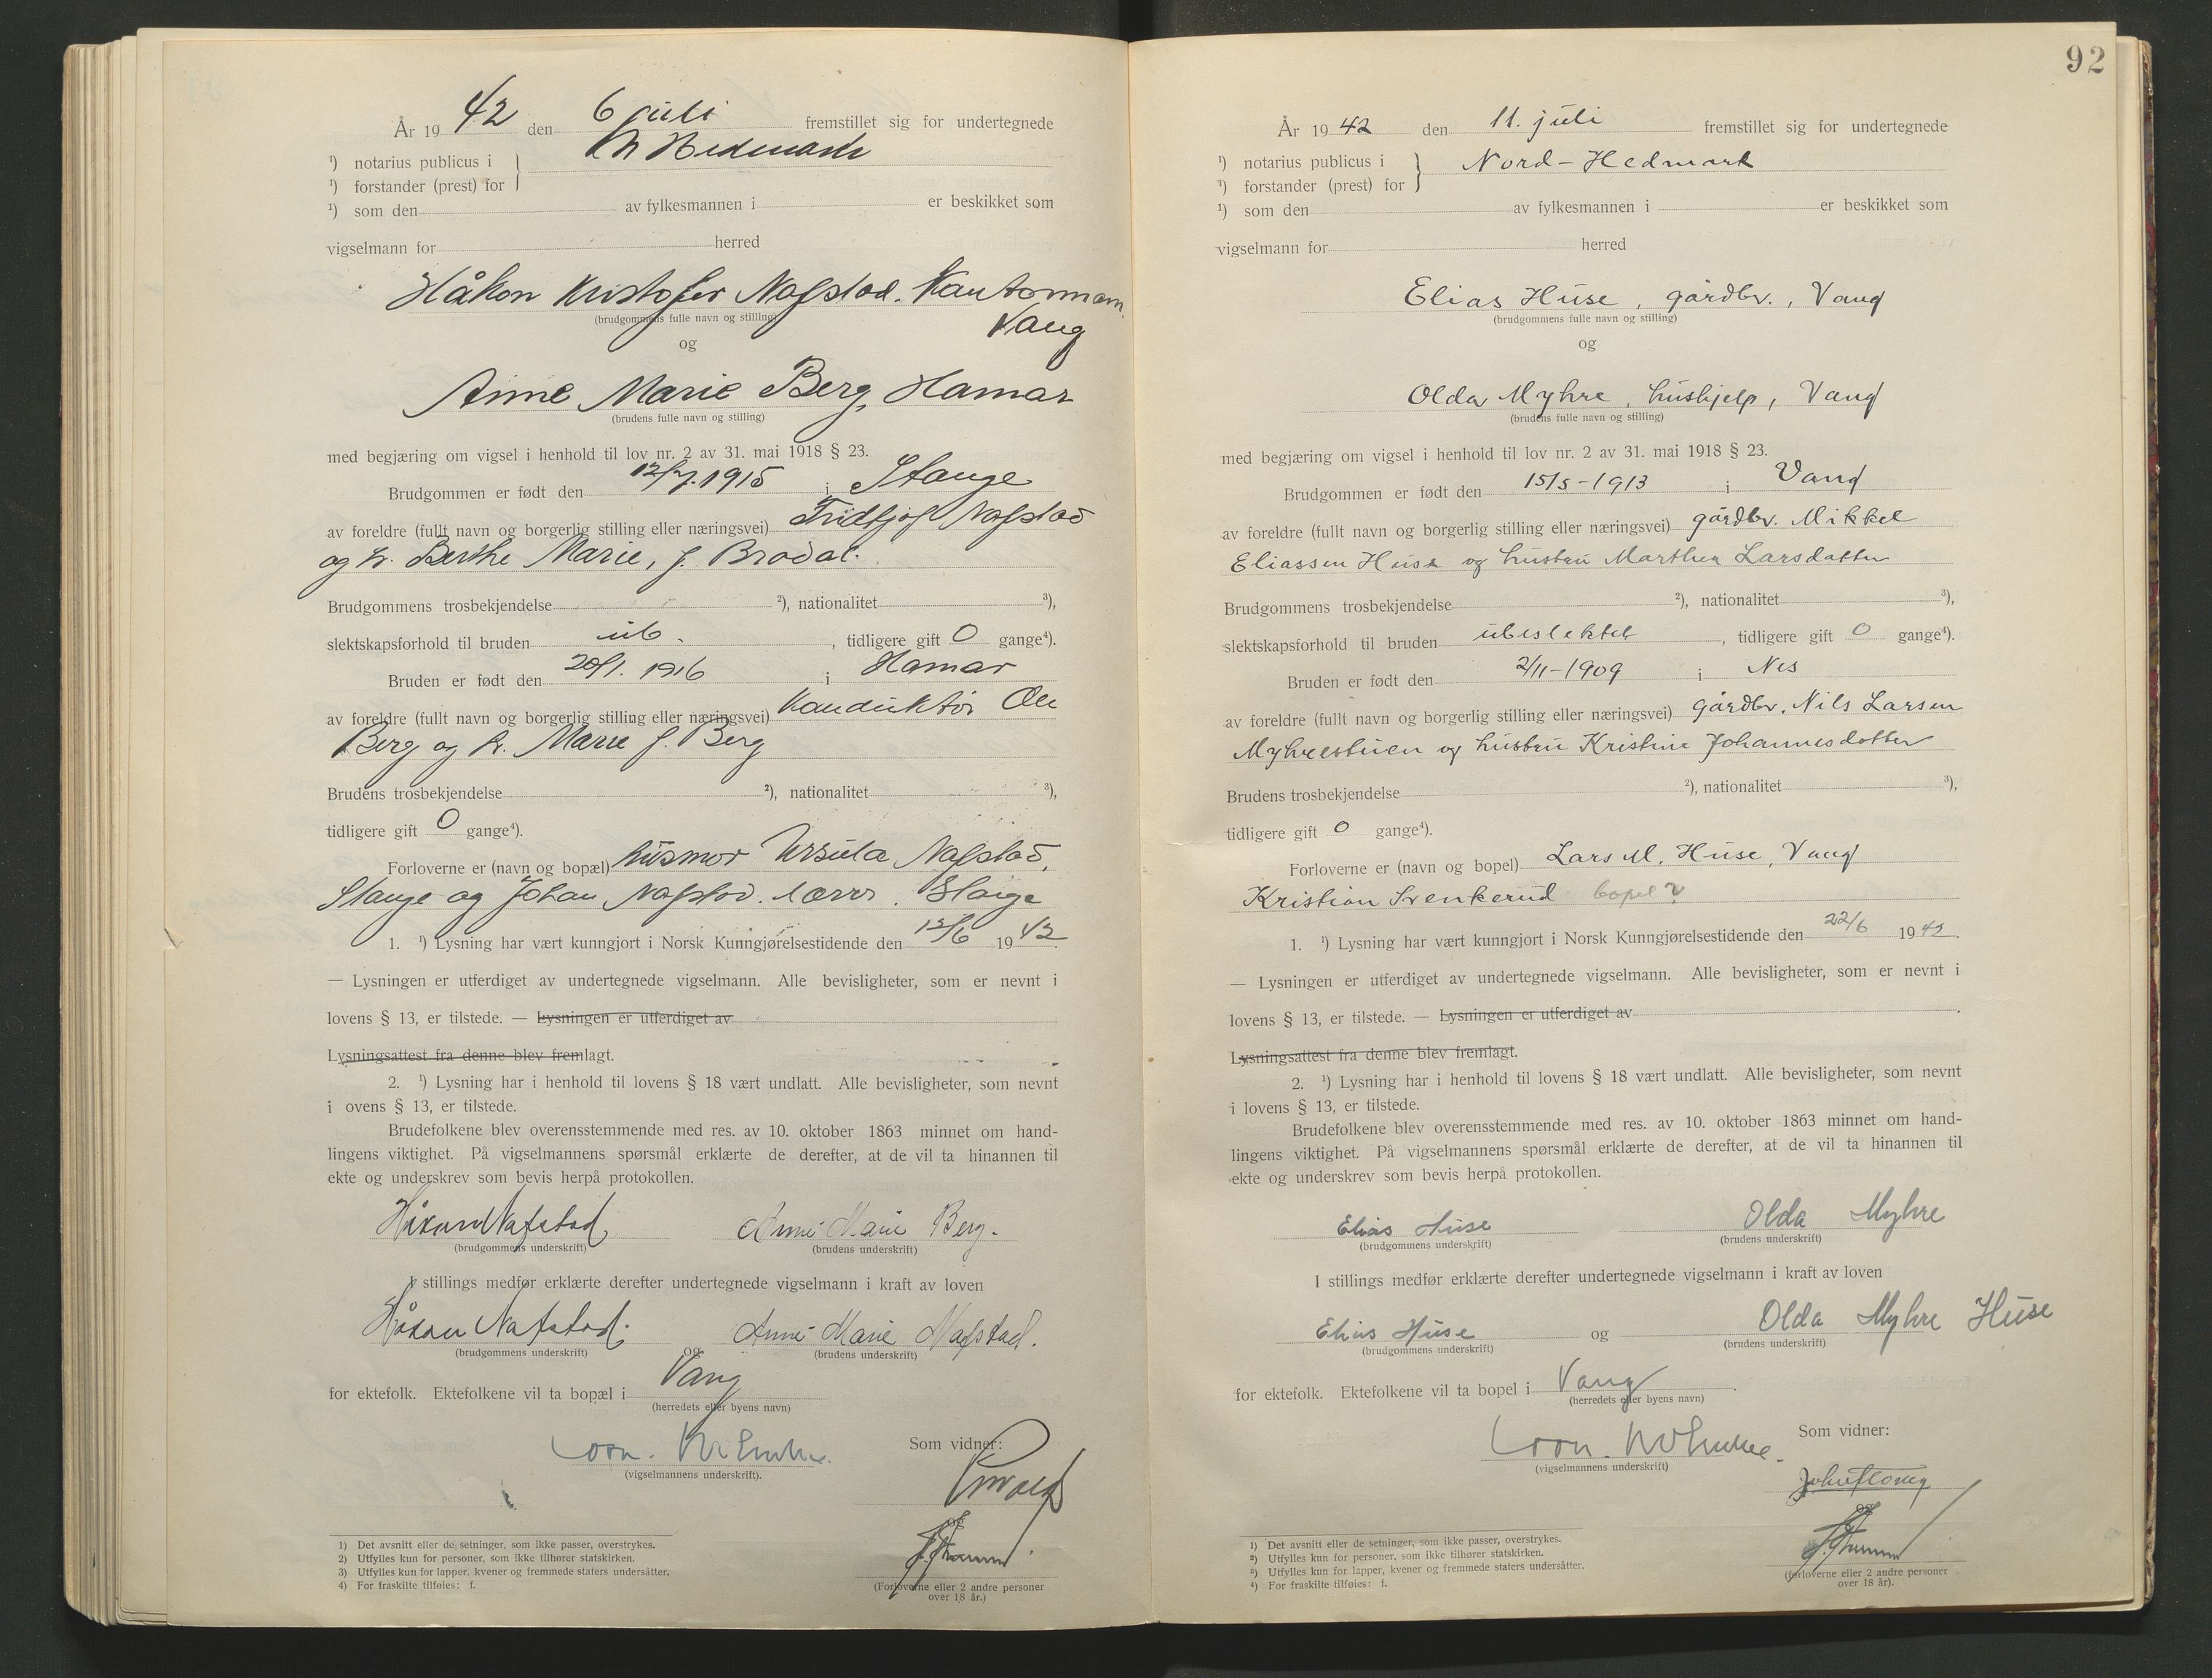 År 19 42 den 6 juli fremstillet sig for undertegnede
¹) notarius publicus i N Hedmark
¹) forstander (prest) for
¹) som den av fylkesmannen i er beskikket som
vigselmann for herred
Håkon Kristofer Nafstad. Kontormann.
(brudgommens fulle navn og stilling)
Vang
og
Anne Marie Berg, Hamar
(brudens fulle navn og stilling)
med begjæring om vigsel i henhold til lov nr. 2 av 31. mai 1918 § 23.
Brudgommen er født den 12/7.1915 i Stange
av foreldre (fullt navn og borgerlig stilling eller næringsvei) Fridtjof Nafstad
og h. Berthe Marie, f. Brodal.
Brudgommens trosbekjendelse ²), nationalitet ³),
slektskapsforhold til bruden ub. , tidligere gift 0 gange⁴).
Bruden er født den 20/1. 1916 i Hamar
av foreldre (fullt navn og borgerlig stilling eller næringsvei) Konduktør Ole
Berg og h. Marie f. Berg
Brudens trosbekjendelse ²), nationalitet ³),
tidligere gift 0 gange⁴).
Forloverne er (navn og bopæl) husmor Ursula Nafstad,
Stange og Johan Nafstad. lærer. Stange
1. ¹) Lysning har vært kunngjort i Norsk Kunngjørelsestidende den 12/6 19 42
— Lysningen er utferdiget av undertegnede vigselmann. Alle bevisligheter, som er nevnt i
lovens § 13, er tilstede. — Lysningen er utferdiget av
Lysningsattest fra denne blev fremlagt.
2. ¹) Lysning har i henhold til lovens § 18 vært undlatt. Alle bevisligheter, som nevnt
i ovens § 13, er tilstede.
Brudefolkene blev overensstemmende med res. av 10. oktober 1863 minnet om hand-
lingens viktighet. På vigselmannens spørsmål erklærte de derefter, at de vil ta hinannen til
ekte og underskrev som bevis herpå protokollen.
Håkon Nafstad Anne-Marie Berg.
(brudgommens underskrift) (brudens underskrift)
I stillings medfør erklærte derefter undertegnede vigselmann i kraft av loven
Håkon Nafstad. og Anne-Marie Nafstad.
(brudgommens underskrift) (brudens underskrift)
for ektefolk. Ektefolkene vil ta bopæl i Vang
(herredets eller byens navn)
Som vidner:
(vigselmannens underskrift).
og
1) Det avsnitt eller de setninger, som ikke passer, overstrykes.
2) Utfylles kun for personer, som ikke tilhører statskirken.
3) Utfylles kun for lapper, kvener og fremmede staters undersåtter.
4) For fraskilte tilføies: f.
(Forloverne eller 2 andre personer
over 18 år.)
92
År 19 42 den 11. juli fremstillet sig for undertegnede
¹) notarius publicus i Nord-Hedmark
¹) forstander (prest) for
¹) som den av fylkesmannen i er beskikket som
vigselmann for herred
Elias Huse, gårdbr., Vang
(brudgommens fulle navn og stilling)
og
Olda Myhre, hushjelp, Vang
(brudens fulle navn og stilling)
med begjæring om vigsel i henhold til lov nr. 2 av 31. mai 1918 § 23.
Brudgommen er født den 15/5-1913 i Vang
av foreldre (fullt navn og borgerlig stilling eller næringsvei) gårdbr. Mikkel
Eliassen Huse og hustru Marthea Larsdatter
Brudgommens trosbekjendelse ²), nationalitet ³),
slektskapsforhold til bruden ubeslektet , tidligere gift 0 gange⁴).
Bruden er født den 2/11-1909 i Nes
av foreldre (fullt navn og borgerlig stilling eller næringsvei) gårdbr. Nils Larsen
Myhrestuen og hustru Kristine Johannesdatter
Brudens trosbekjendelse ²), nationalitet ³),
tidligere gift 0 gange⁴).
Forloverne er (navn og bopel) Lars M. Huse, Vang
Kristian Svenkerud bopel?
1. ¹) Lysning har vært kunngjort i Norsk Kunngjørelsestidende den 22/6 19 42.
— Lysningen er utferdiget av undertegnede vigselmann. Alle bevisligheter, som er nevnt i
lovens § 13, er tilstede. — Lysningen er utferdiget av .
Lysningsattest fra denne blev fremlagt.
2. ¹) Lysning har i henhold til lovens § 18 vært undlatt. Alle bevisligheter, som nevnt
i lovens § 13, er tilstede.
Brudefolkene blev overensstemmende med res. av 10. oktober 1863 minnet om hand-
lingens viktighet. På vigselmannens spørsmål erklærte de derefter, at de vil ta hinannen til
ekte og underskrev som bevis herpå protokollen.
Elias Huse Olda Myhre
(brudgommens underskrift) (brudens underskrift)
I stillings medfør erklærte derefter undertegnede vigselmann i kraft av loven
Elias Huse og Olda Myhre Huse
(brudgommens underskrift) (brudens underskrift)
for ektefolk. Ektefolkene vil ta bopel i Vang .
(herredets eller byens navn)
Som vidner:
(vigselmannens underskrift)
og
1) Det avsnitt eller de setninger, som ikke passer, overstrykes.
²) Utfylles kun for personer, som ikke tilhører statskirken.
³) Utfylles kun for lapper, kvener og fremmede staters undersåtter.
⁴) For fraskilte tilføies: f.
(forloverne eller 2 andre personer
over 18 år).